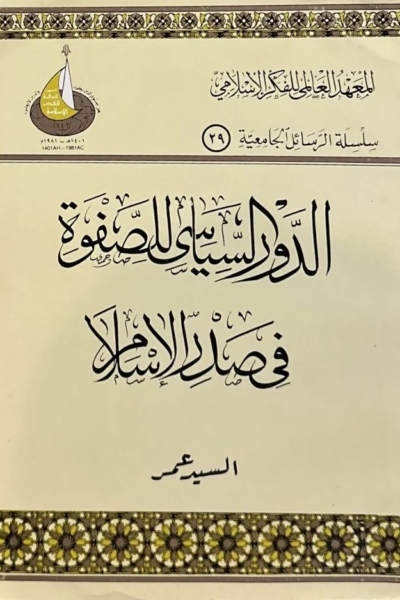 المعهد العالمي للفكر الإسلامي
سلسلة الرسائل الجامعية (٢٩)
١٤٠١هـ - ١٩٨١م
1401AH-1981AC
الدور السياسي للصفوة
في صدر الإسلام
السيد عمر